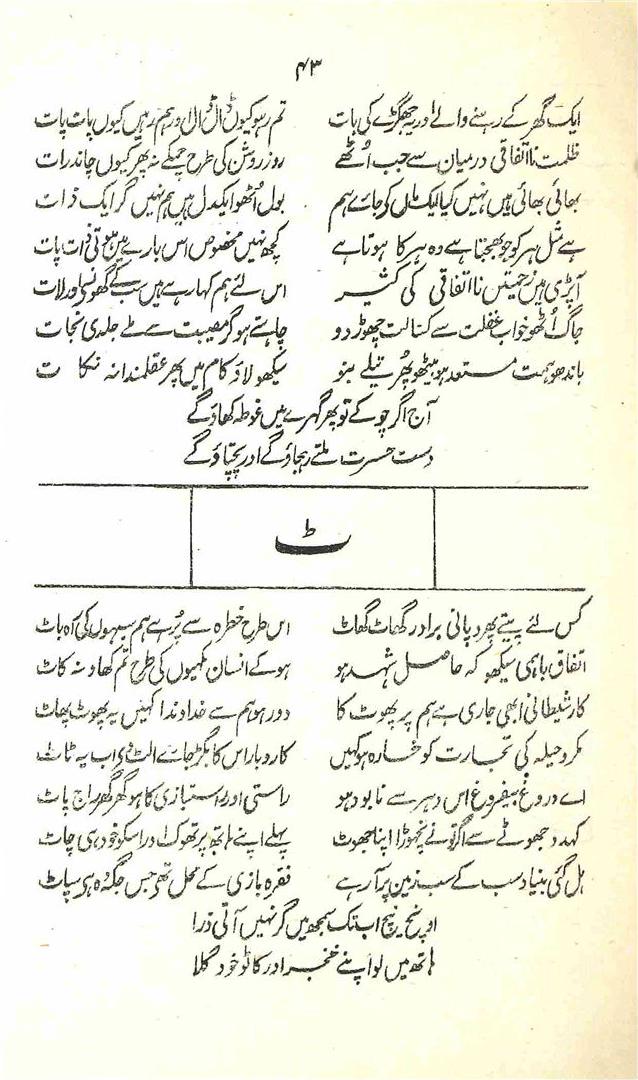 ۴۳
ایک گھر کے رہنے والے اور یہ جھگڑے کی بات تم رہو کیوں ڈال ڈال اور ہم رہیں کیوں پات پات
ظلمت نااتفاقی درمیان سے جب اُٹھے روز روشن کی طرح چمکے نہ پھر کیوں چاند رات
بھائی بھائی ہیں نہیں کیا ایک ماں کو جائے ہم بول اُٹھو ایکدل ہیں ہم نہیں گر ایک ذات
ہے مثل ہر کو جو بھجتا ہے وہ ہر کا ہوتا ہے کچھ نہیں مخصوص اس بارے میں ہوتی ذات پات
آپڑی ہیں زحمتیں نااتفاقی کی کثیر اس لئے ہم کھا رہے ہیں سب کے گھونسا اور لات
جاگ اُٹھو خواب غفلت سے کسالت چھوڑ دو چاہتے ہو گر مصیبت سے ملے جلدی نجات
باندھو ہمت مستعد ہو بیٹھو پھرتیلے بنو سیکھو لاؤ کام میں پھر عقلمندانہ نکات
آج اگر چوکے تو پھر گہرے میں غوطہ کھاؤگے
دست حسرت ملتے رہجاؤگے اور پچتاؤگے
ٹ
کس لئے پیتے پھرو پانی برادر گھاٹ گھاٹ اس طرح خطرہ سے پُر ہے ہم سبہوں کی آہ باٹ
اتفاق باہمی سیکھو کہ حاصل شہد ہو ہوکے انسان مکھیوں کی طرح تم کھاؤ نہ کاٹ
کار شیطانی ابھی جاری ہے ہم پر پھوٹ کا دور ہو ہم سے خداوندا کہیں یہ پھوٹ پھاٹ
مکر و حیلہ کی تجارت کو خسارہ ہو کہیں کاروبار اس کا بگڑ جائے الٹ دی اب یہ ٹاٹ
اے دروغ بیفروغ اس دہر سے نابود ہو راستی اور راستبازی کا ہو گھر گھر راج پاٹ
کہدو جھوٹے سے اگر تونے نچھوڑا اپنا جھوٹ پہلے اپنے ہاتھ پر تھوک اور اسکو خود ہی چاٹ
ہل گئی بنیاد سب کے سب زمین پر آرہے فقرہ بازی کے محل تھے جس جگہ وہ ہی سپاٹ
اونچ نیچ اب تک سمجھ میں گر نہیں آتی ذرا
ہاتھ میں لو اپنے خنجر اور کاٹو خود گلا